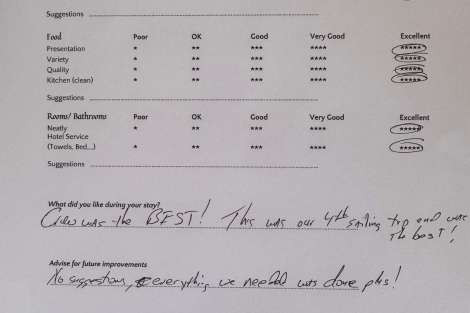 Suggestions
Food Poor OK Good Very Good Excellent
Presentation * ** *** **** *****
Variety * ** *** **** *****
Quality * ** *** **** *****
Kitchen (clean) * ** *** **** *****
Suggestions
Rooms/ Bathrooms Poor OK Good Very Good Excellent
Neatly * ** *** **** *****
Hotel Service
(Towels, Bed...) * ** *** **** *****
Suggestions
What did you like during your stay?
Crew was the BEST! This was our 4th sailing trip and was
the best!
Advise for future improvements
No suggestions, everything we needed was done plus!